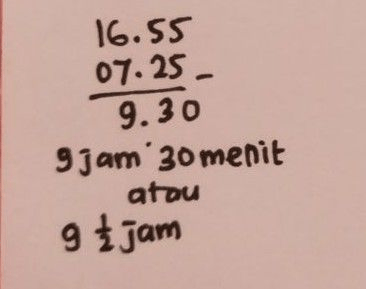 16.55
07.25 -
9.30
9 jam 30 menit
atau
9 ½ jam